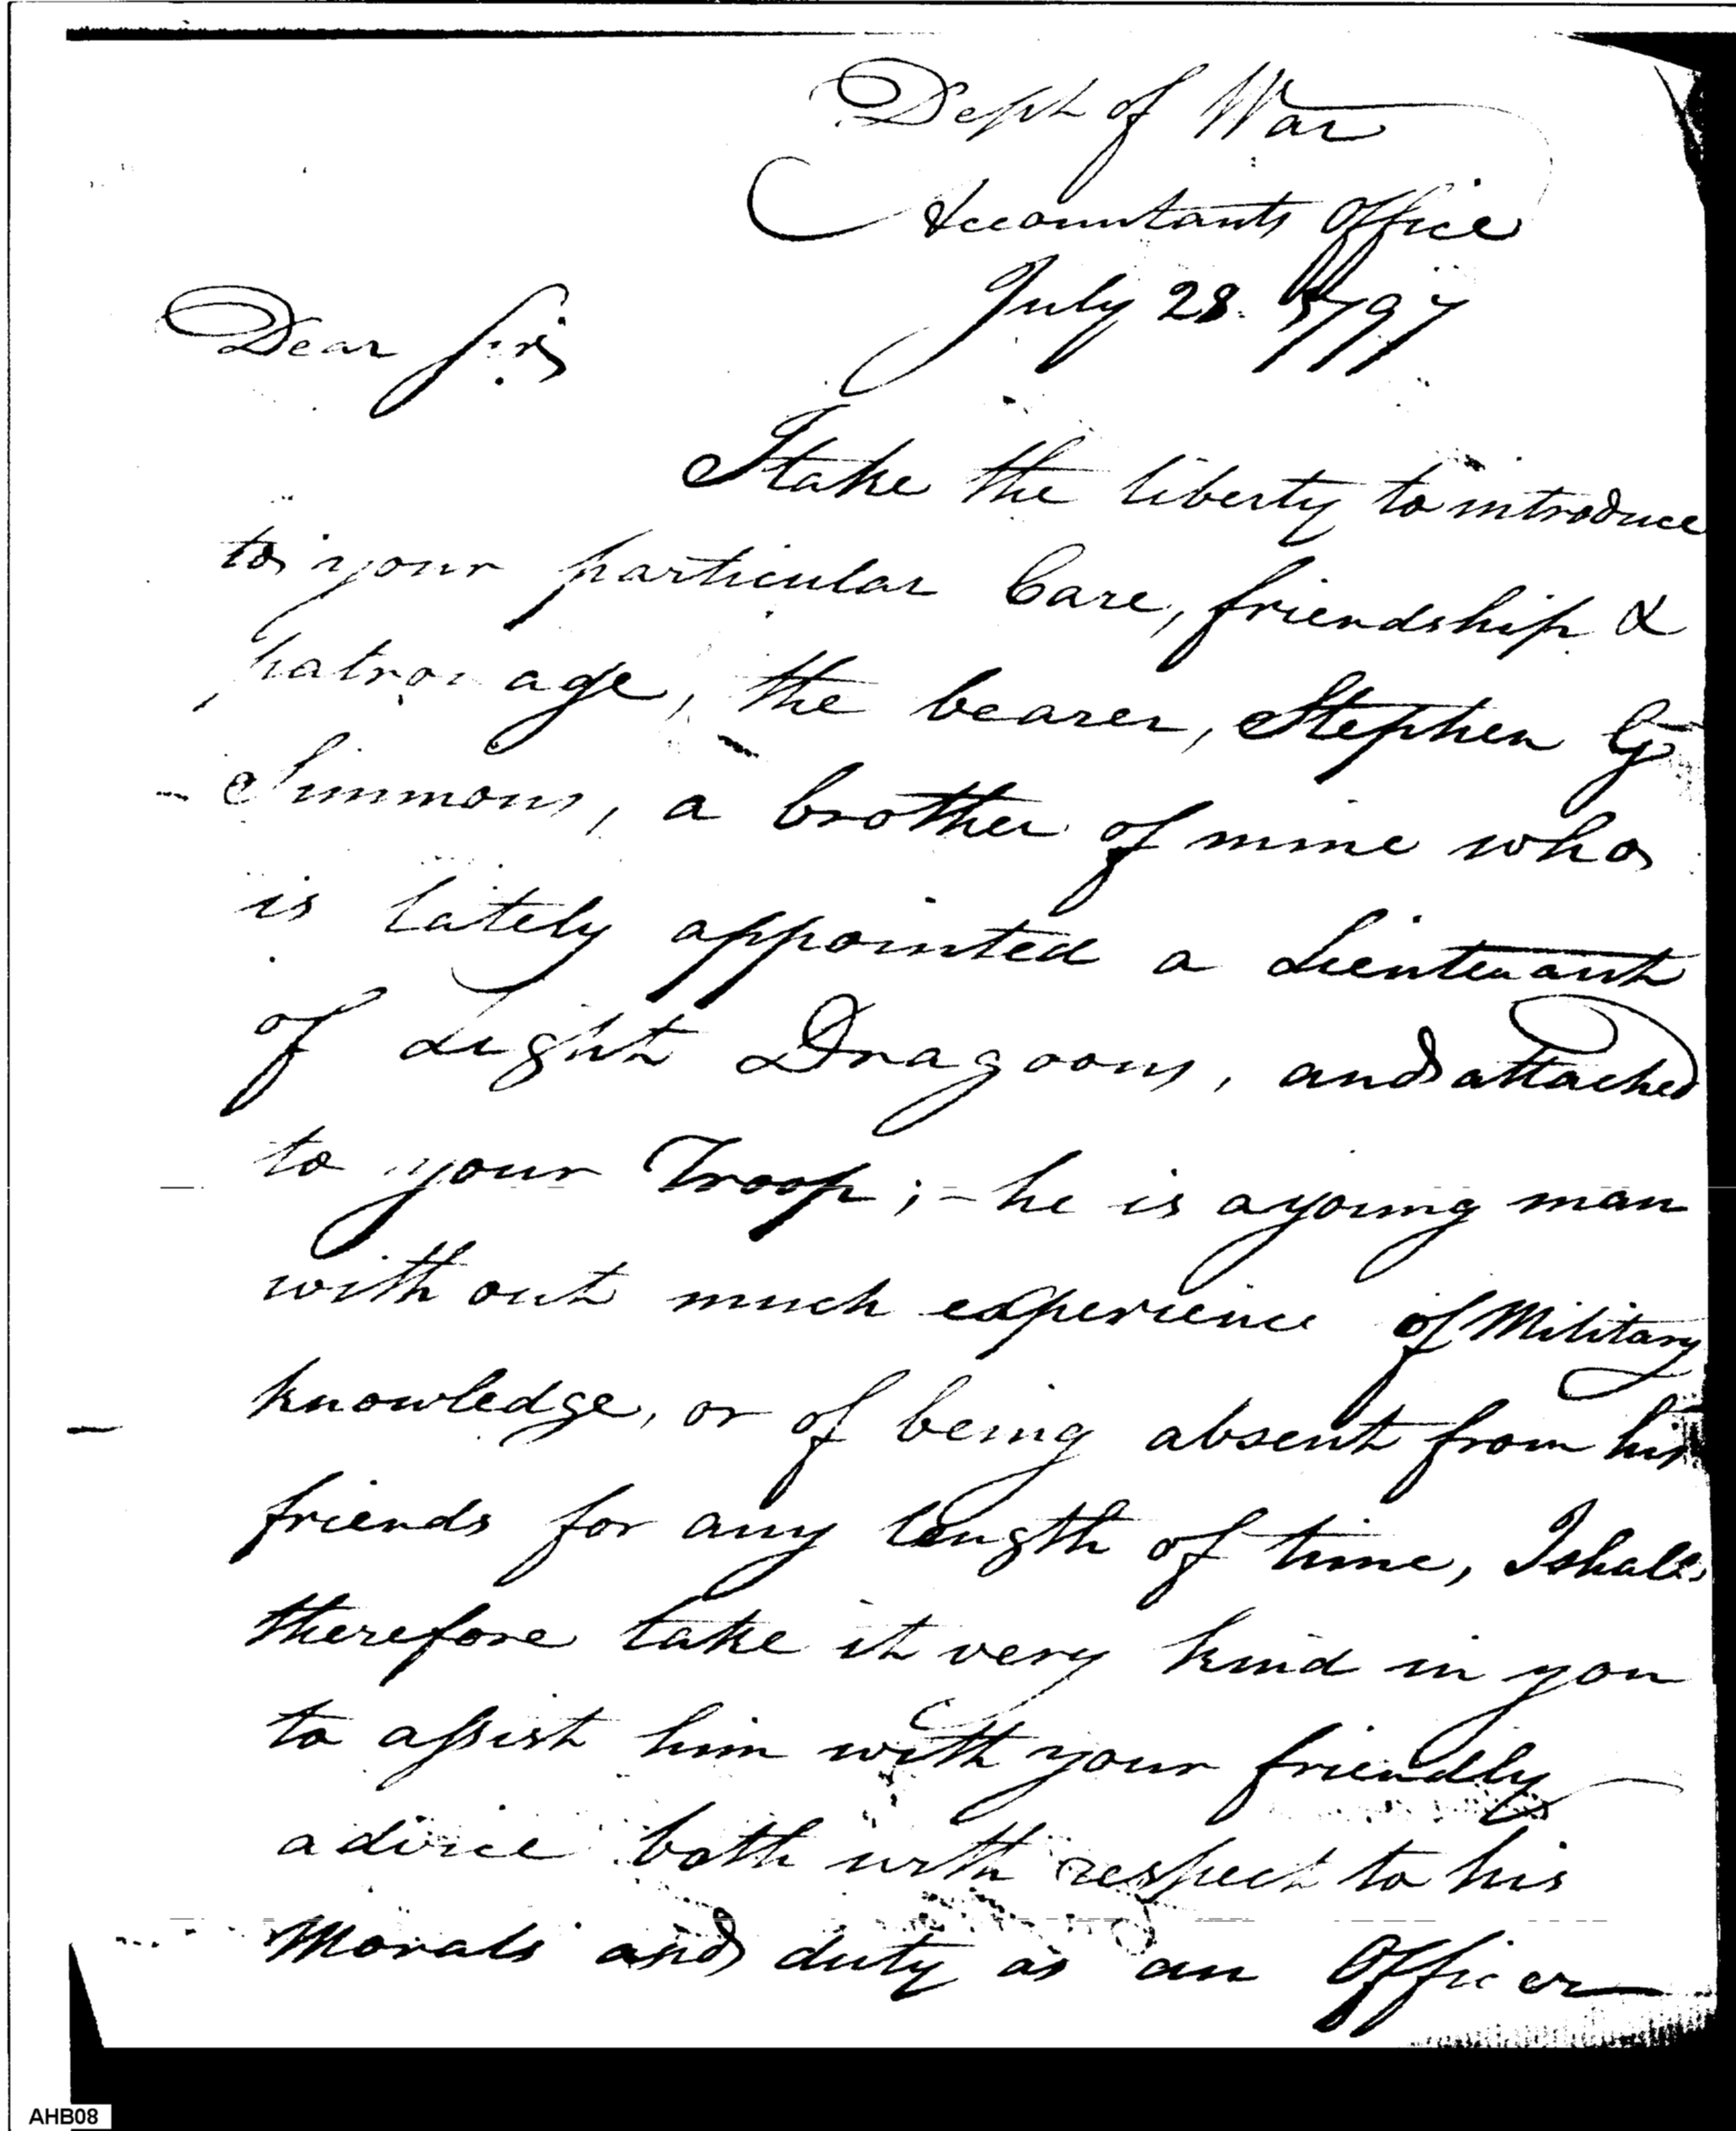 Dept of War
Accountants Office
July 28. 1797
Dear Sir,
I take the liberty to introduce
to your particular Care, friendship &
patronage, the bearer, Stephen G
Simmons, a brother of mine who
is lately appointed a Lieutenant
of Light Dragoons, and attached
to your Troop; - he is a young man
with out much experience of Military
knowledge, or of being absent from his
friends for any length of time, I shall
therefore take it very kind in you
to assist him with your friendly
advice both with respect to his
Morals and duty as an Officer
AHB08